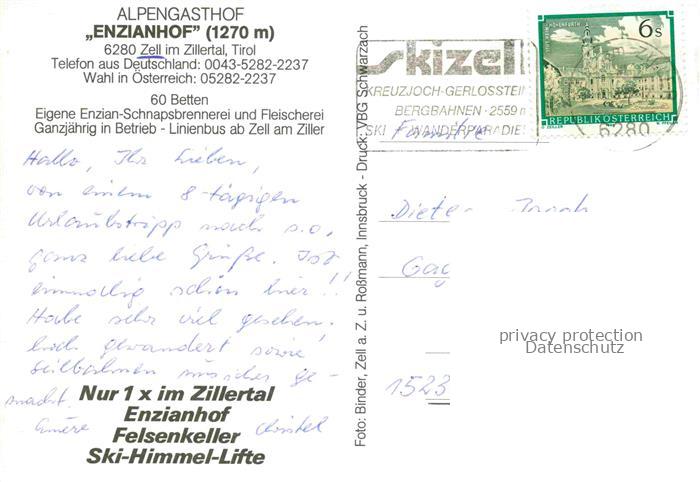 ALPENGASTHOF
„ENZIANHOF" (1270 m)
6280 Zell im Zillertal, Tirol
Telefon aus Deutschland: 0043-5282-2237
Wahl in Österreich: 05282-2237
60 Betten
Eigene Enzian-Schnapsbrennerei und Fleischerei
Ganzjährig in Betrieb - Linienbus ab Zell am Ziller
Hallo, Ihr Lieben,
von einem 8-tägigen
Urlaubstripp nach s.o.
ganz liebe Grüße. Ist
einmalig schön hier!!
Habe sehr viel gesehen.
gewandert sowie
Seilbahnen ge-
macht.
Euere Christel
Nur 1 x im Zillertal
Enzianhof
Felsenkeller
Ski-Himmel-Lifte
Foto: Binder, Zell a. Z. u. Roßmann, Innsbruck - Druck: VBG Schwarzach
skizell
KREUZJOCH-GERLOSSTEIN
BERGBAHNEN · 2559 m
SKI WANDERPARADIE
6280
6 S
REPUBLIK ÖSTERREICH
Familie
Dieter
Gag
1523
privacy protection
Datenschutz